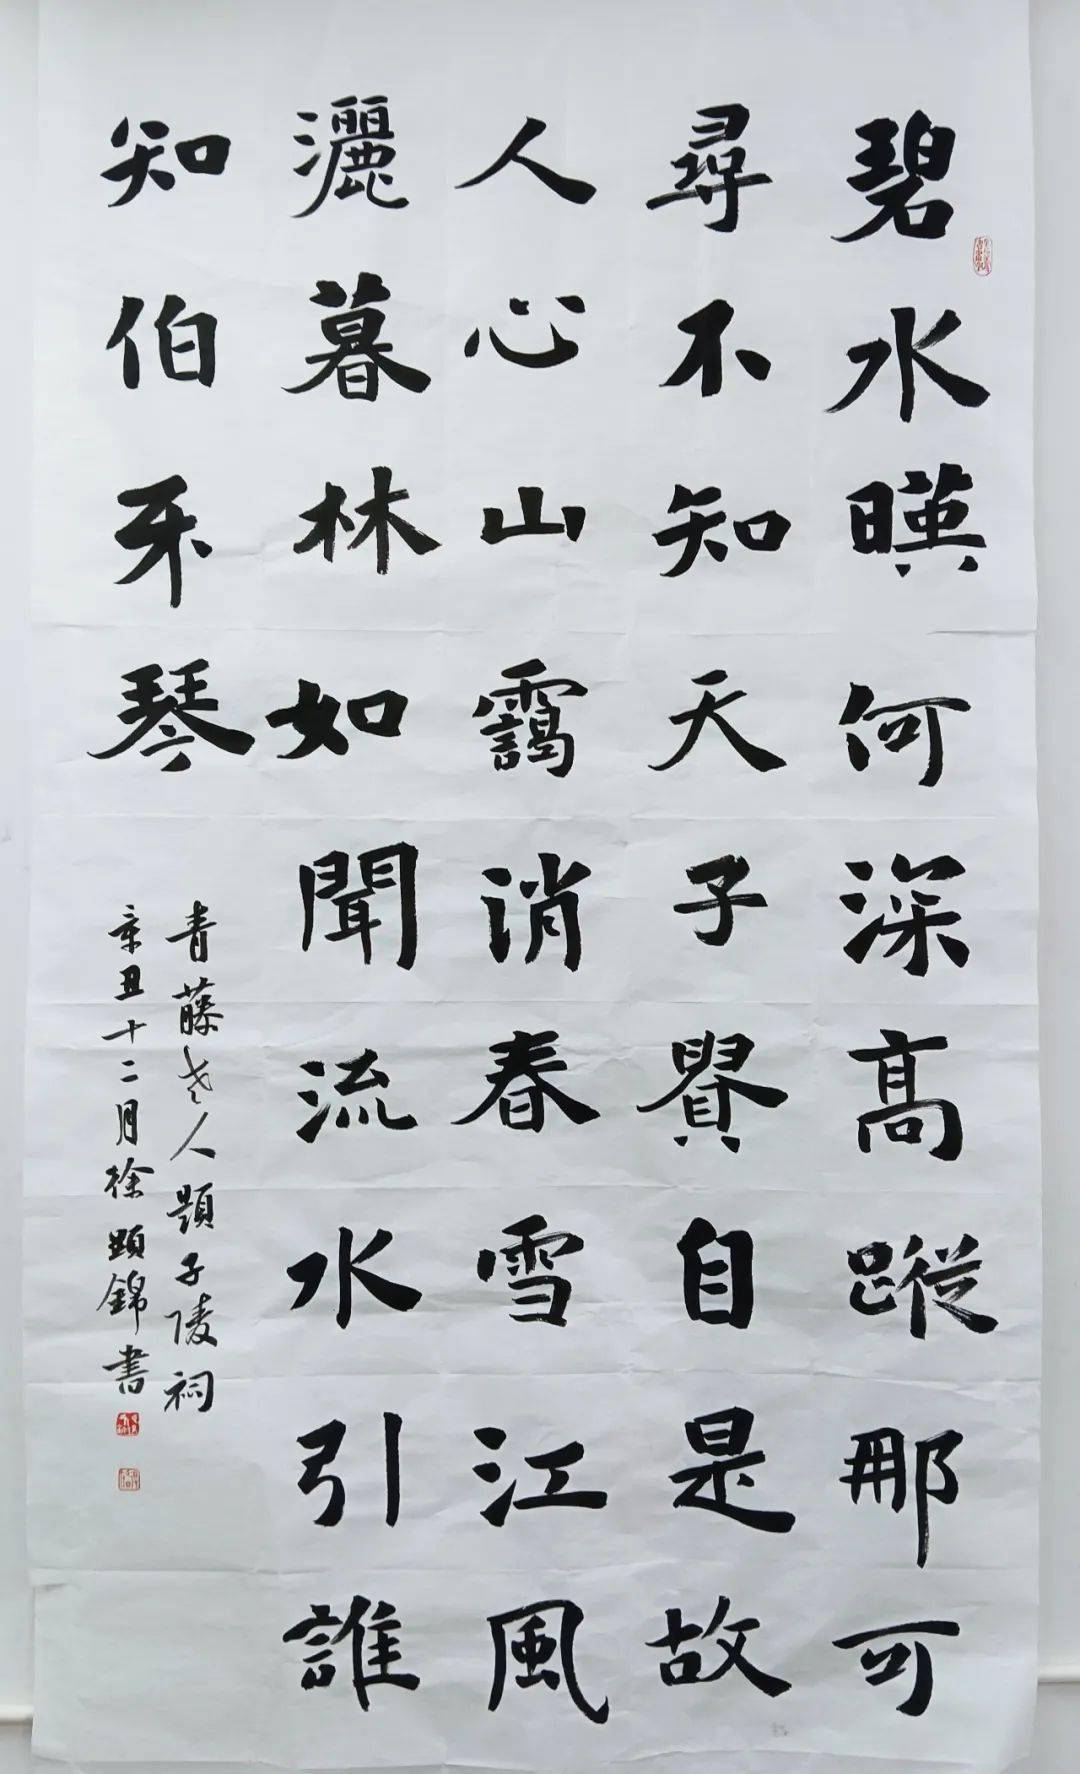 碧水暎何深高蹤那可
尋不知天子貴自是故
人心山靄消春雪江風
灑暮林如聞流水引誰
知伯牙琴
青藤老人題子陵祠
辛丑十二月徐顕錦書